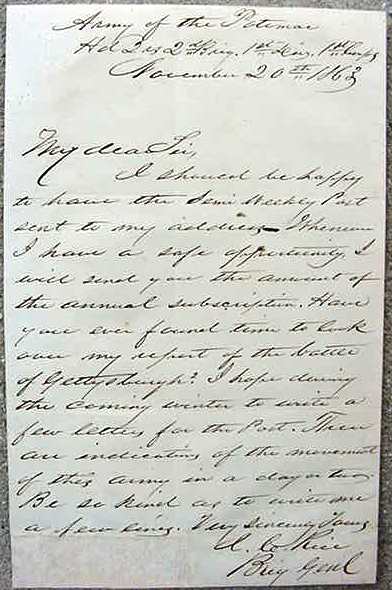 Army of the Potomac
Hd Qrs 2nd Brig. 1st Div. 1st Corps
November 20th 1863
My dear Sir,
I should be happy
to have the Semi Weekly Post
sent to my address. Whenever
I have a safe opportunity, I
will send you the amount of
the annual subscription. Have
you ever found time to look
over my report of the battle
of Gettysburgh? I hope during
the coming winter to write a
few letters for the Post. There
are indications of the movement
of this army in a day or two
Be so kind as to write me
a few lines. Very sincerely Yours
Rice
Brig Genl